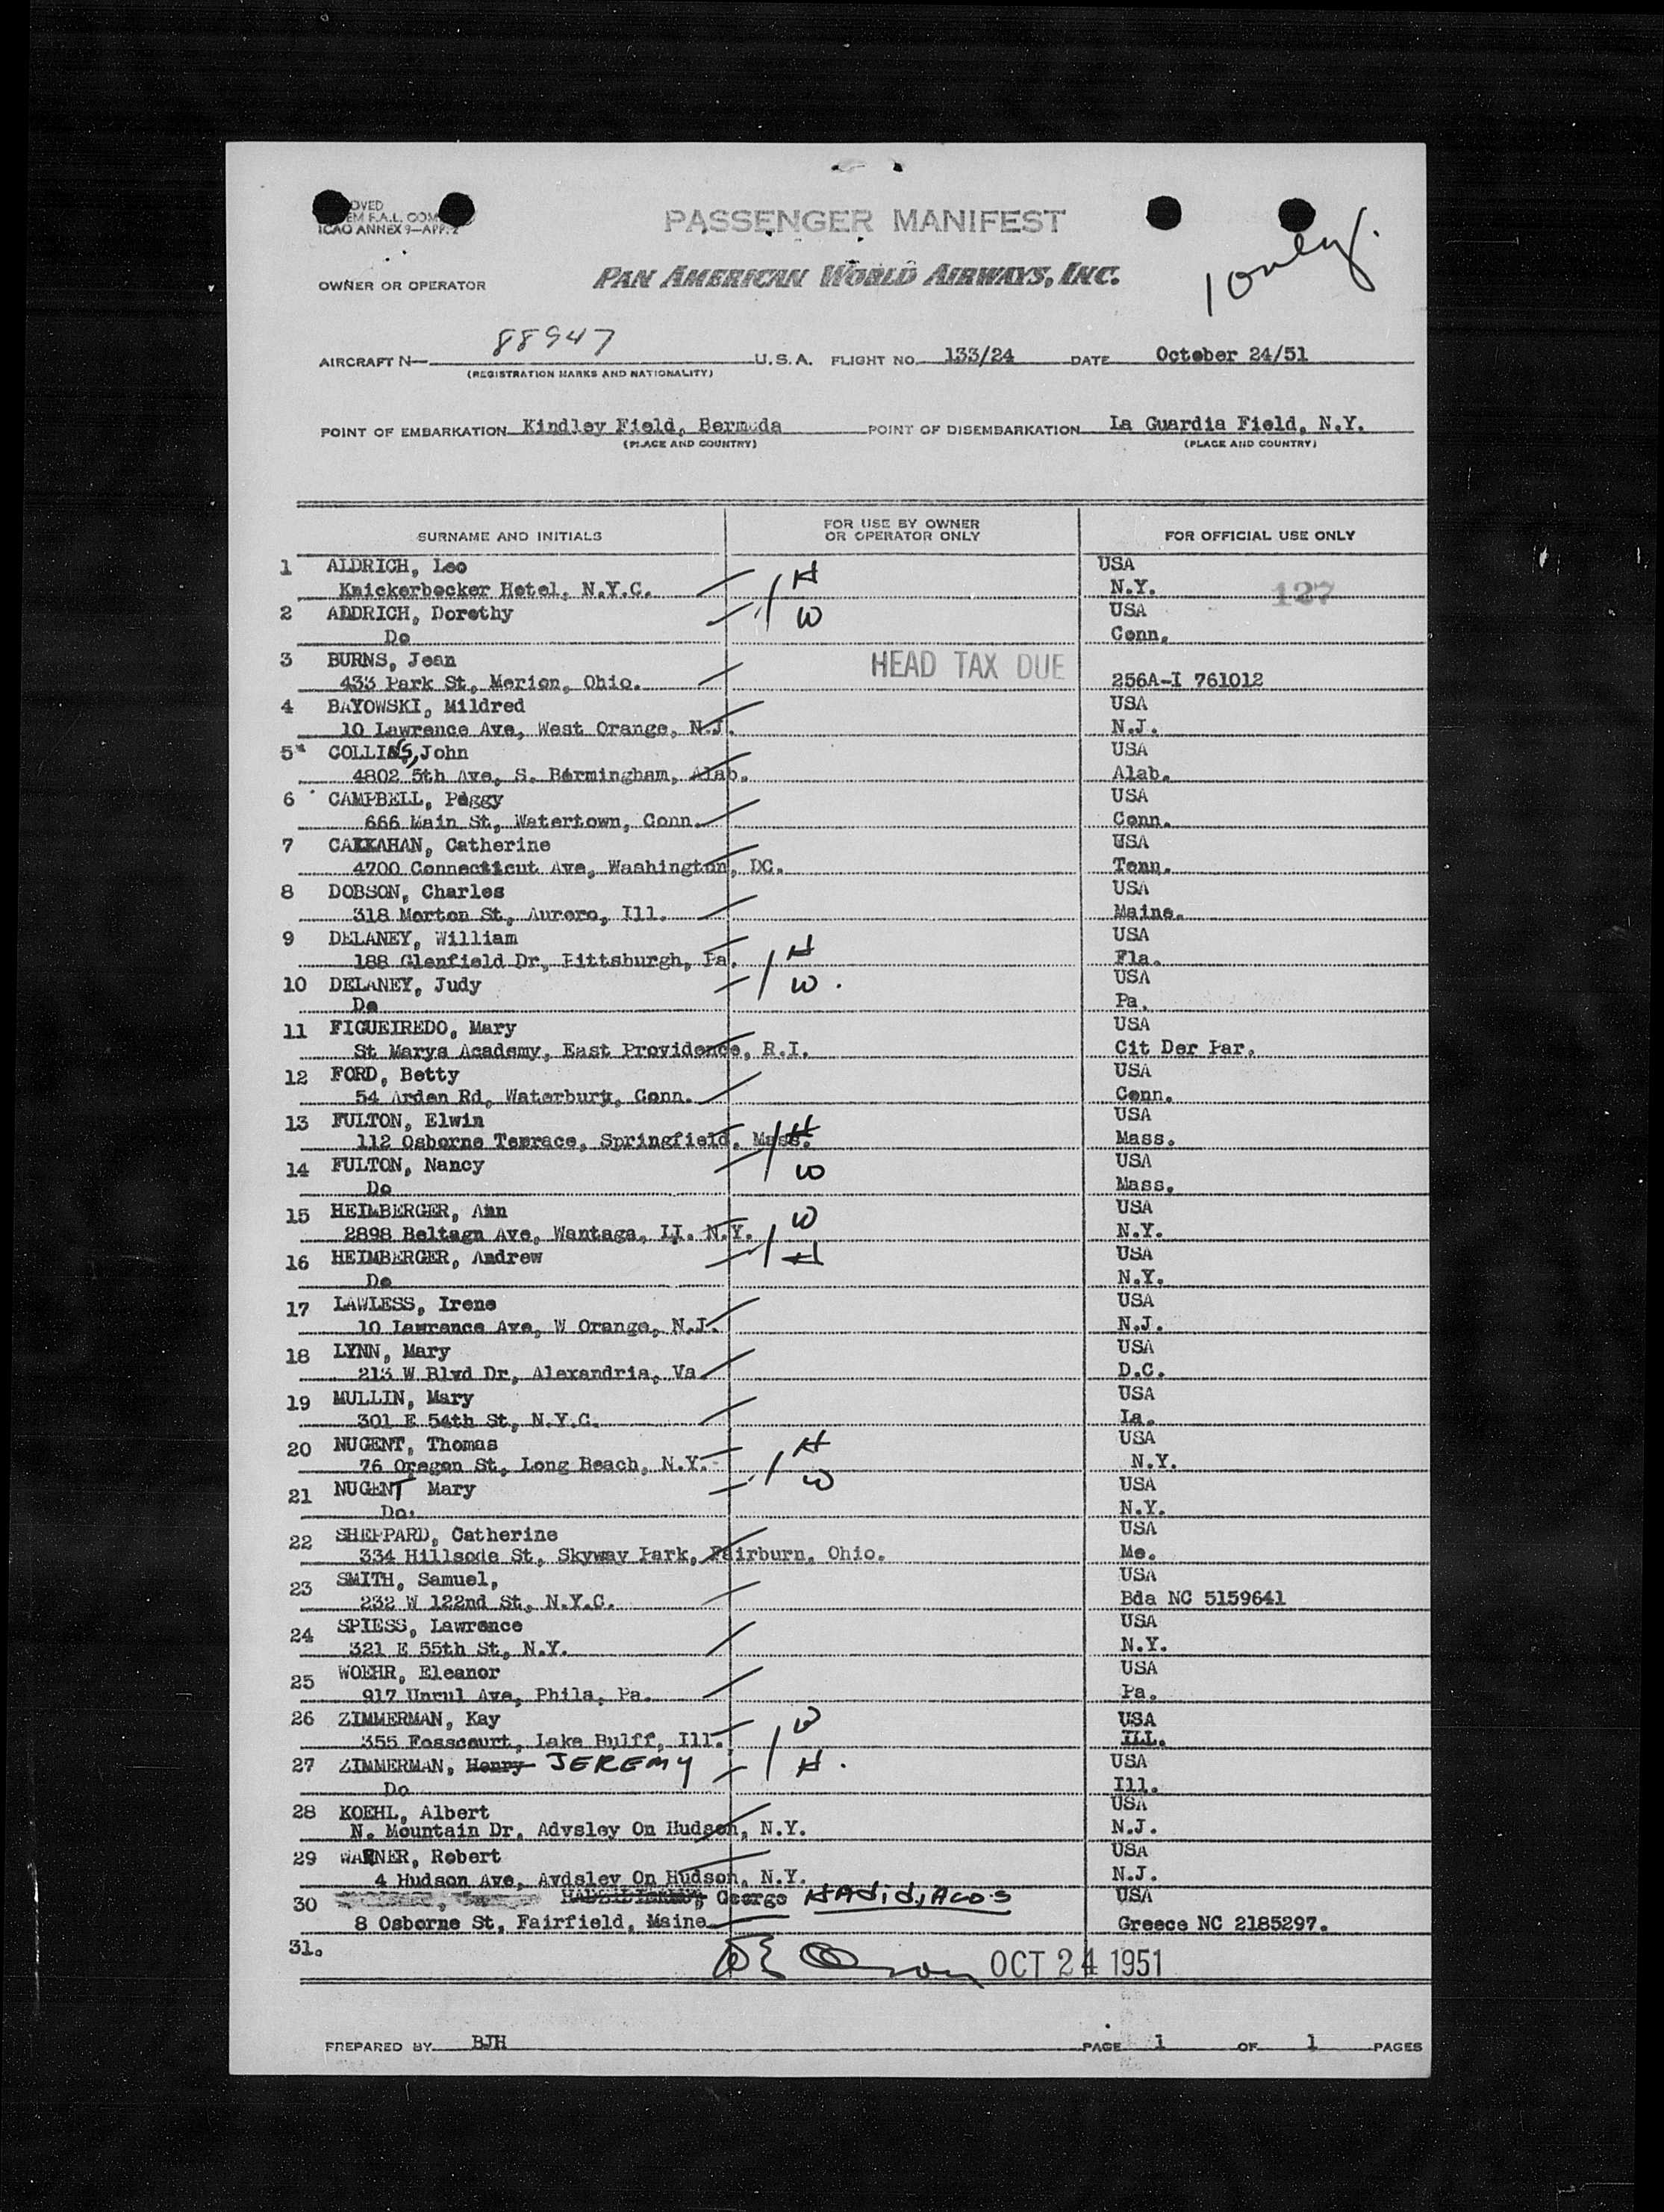 OVED
EM F.A.L. COM
ICAO ANNEX 9—APP. 2
PASSENGER MANIFEST
1 only.
OWNER OR OPERATOR PAN AMERICAN WORLD AIRWAYS, INC.
AIRCRAFT N— 88947 U.S.A. FLIGHT NO. 133/24 DATE October 24/51
(REGISTRATION MARKS AND NATIONALITY)
POINT OF EMBARKATION Kindley Field, Bermuda POINT OF DISEMBARKATION La Guardia Field, N.Y.
(PLACE AND COUNTRY) (PLACE AND COUNTRY)
SURNAME AND INITIALS FOR USE BY OWNER OR OPERATOR ONLY FOR OFFICIAL USE ONLY
1 ALDRICH, Leo H USA
Knickerbocker Hotel, N.Y.C. N.Y. 127
2 ALDRICH, Dorothy W USA
Do Conn.
3 BURNS, Jean HEAD TAX DUE
433 Park St, Merion, Ohio. 256A-I 761012
4 BAYOWSKI, Mildred USA
10 Lawrence Ave, West Orange, N.J. N.J.
5 COLLINS, John USA
4802 5th Ave, S. Bermingham, Alab. Alab.
6 CAMPBELL, Peggy USA
666 Main St, Watertown, Conn. Conn.
7 CALLAHAN, Catherine USA
4700 Connecticut Ave, Washington, DC. Tenn.
8 DOBSON, Charles USA
318 Morton St, Aurora, Ill. Maine.
9 DELANEY, William H USA
188 Glenfield Dr, Pittsburgh, Pa. Fla.
10 DELANEY, Judy W. USA
Do Pa.
11 FIGUEIREDO, Mary USA
St Marys Academy, East Providence, R.I. Cit Der Par.
12 FORD, Betty USA
54 Arden Rd, Waterbury, Conn. Conn.
13 FULTON, Elwin H USA
112 Osborne Terrace, Springfield, Mass. Mass.
14 FULTON, Nancy W USA
Do Mass.
15 HEIMBERGER, Ann W USA
2898 Beltagn Ave, Wantaga, LI. N.Y. N.Y.
16 HEIMBERGER, Andrew H USA
Do N.Y.
17 LAWLESS, Irene USA
10 Lawrence Ave, W Orange, N.J. N.J.
18 LYNN, Mary USA
213 W Blvd Dr, Alexandria, Va. D.C.
19 MULLIN, Mary USA
301 E 54th St, N.Y.C. Ia.
20 NUGENT, Thomas H USA
76 Oregon St, Long Beach, N.Y. N.Y.
21 NUGENT Mary W USA
Do. N.Y.
22 SHEPPARD, Catherine USA
334 Hillsode St, Skyway Park, Fairburn, Ohio. Me.
23 SMITH, Samuel, USA
232 W 122nd St, N.Y.C. Bda NC 5159641
24 SPIESS, Lawrence USA
321 E 55th St, N.Y. N.Y.
25 WOEHR, Eleanor USA
917 Unrul Ave, Phila, Pa. Pa.
26 ZIMMERMAN, Kay W USA
355 Fosscourt, Lake Bulff, Ill. ILL.
27 ZIMMERMAN, Henry JEREMY H. USA
Do Ill.
28 KOEHL, Albert USA
N. Mountain Dr, Advsley On Hudson, N.Y. N.J.
29 WARNER, Robert USA
4 Hudson Ave, Ardsley On Hudson, N.Y. N.J.
30 George HAdidjACOS USA
8 Osborne St, Fairfield, Maine Greece NC 2185297.
31.
OCT 24 1951
PREPARED BY BJH PAGE 1 OF 1 PAGES